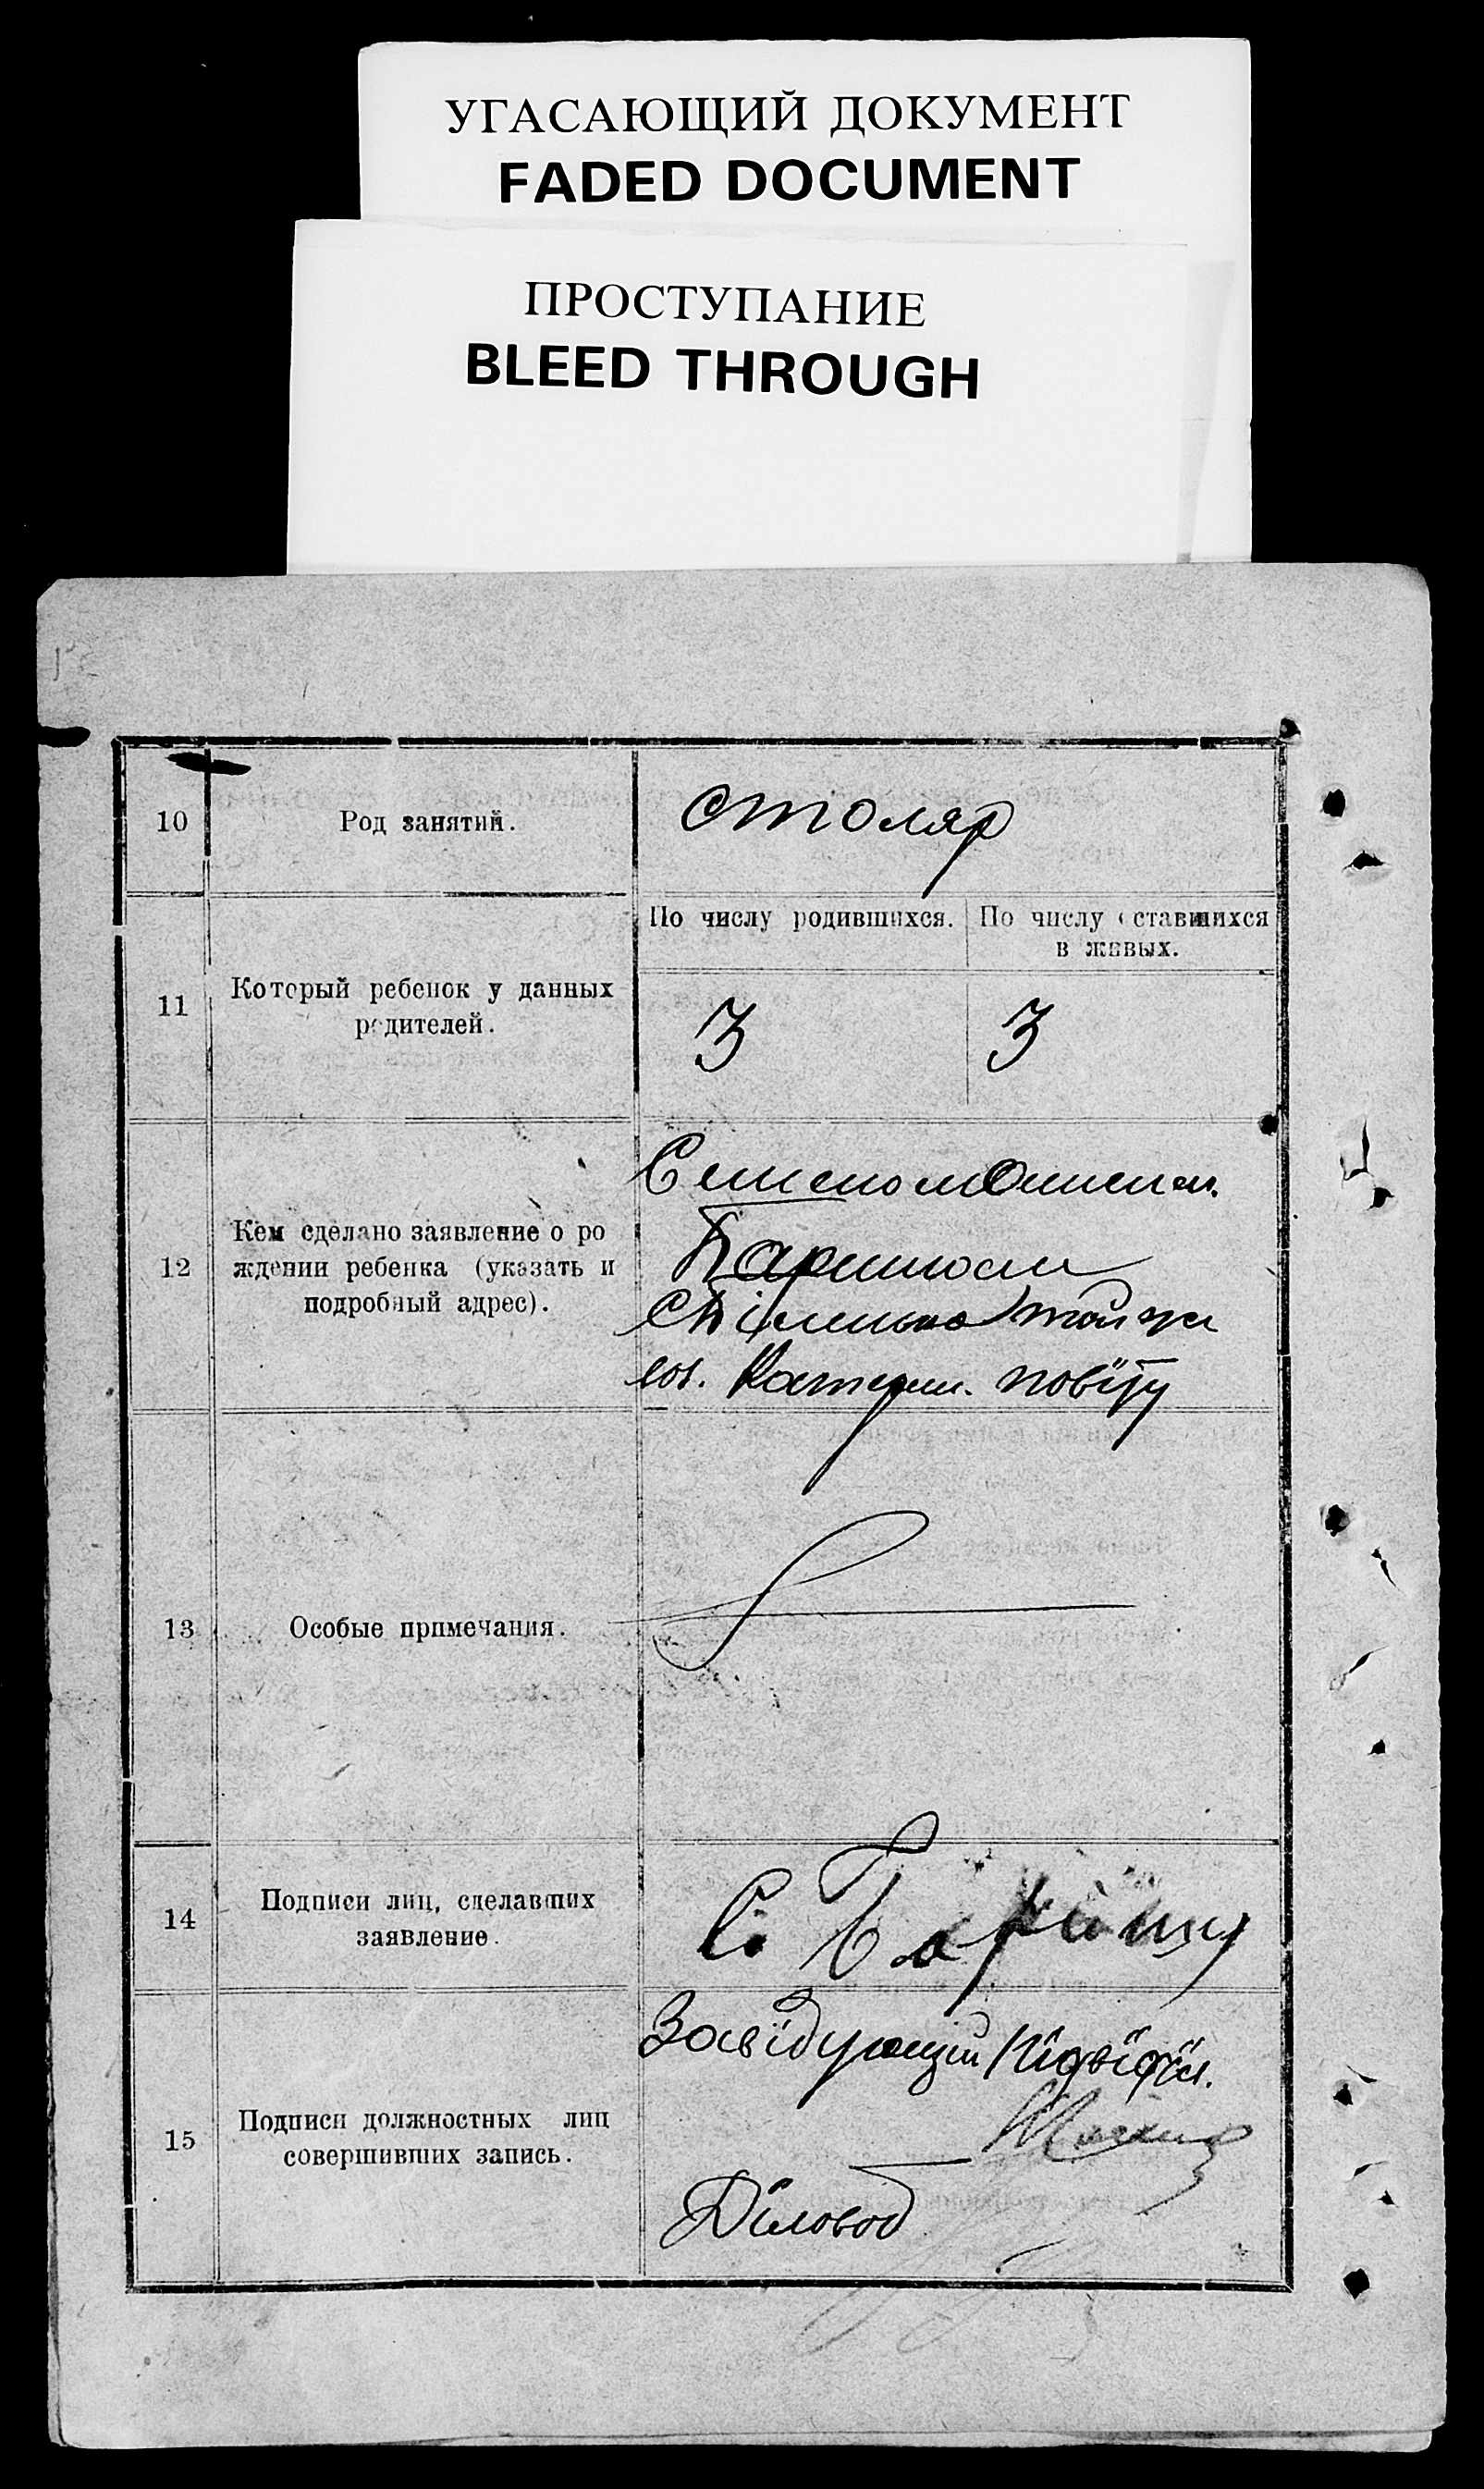 УГАСАЮЩИЙ ДОКУМЕНТ
FADED DOCUMENT
ПРОСТУПАНИЕ
BLEED THROUGH
10
Род занятий.
столяр
11
Который ребенок у данных
родителей.
По числу родившихся.
По числу оставшихся
в живых.
3
3
12
Кем сделано заявление о ро
ждении ребенка (указать и
подробный адрес).
Катерин. повіту
13
Особые примечания.
14
Подписи лиц, сделавших
заявление.
С.
15
Подписи должностных лиц
совершивших запись.
Завідующий Підвідділ.
Діловод